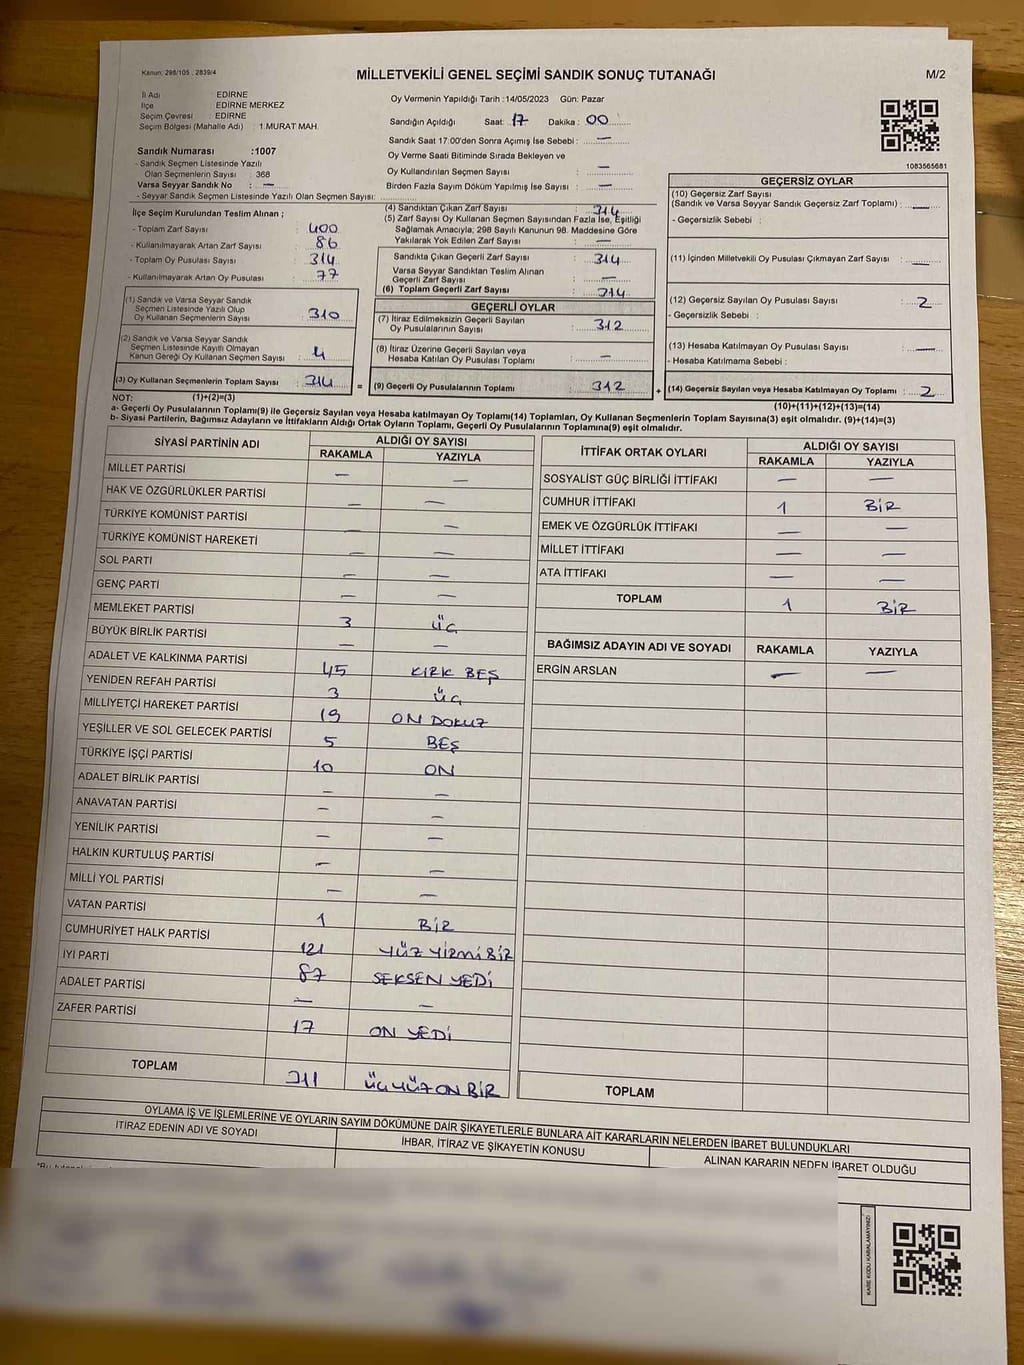 Kanun: 298/105 : 2839/4
MİLLETVEKİLİ GENEL SEÇİMİ SANDIK SONUÇ TUTANAĞI
M/2
İl Adı : EDİRNE
İlçe : EDİRNE MERKEZ
Seçim Çevresi : EDİRNE
Seçim Bölgesi (Mahalle Adı) : 1.MURAT MAH.
Sandık Numarası :1007
- Sandık Seçmen Listesinde Yazılı
Olan Seçmenlerin Sayısı : 368
Varsa Seyyar Sandık No : —
- Seyyar Sandık Seçmen Listesinde Yazılı Olan Seçmen Sayısı:
Oy Vermenin Yapıldığı Tarih :14/05/2023 Gün: Pazar
Sandığın Açıldığı Saat: 17 Dakika : 00
Sandık Saat 17:00'den Sonra Açımış İse Sebebi : —
Oy Verme Saati Bitiminde Sırada Bekleyen ve
Oy Kullandırılan Seçmen Sayısı : —
Birden Fazla Sayım Döküm Yapılmış İse Sayısı : —
1083565681
İlçe Seçim Kurulundan Teslim Alınan ;
- Toplam Zarf Sayısı : 400
- Kullanılmayarak Artan Zarf Sayısı : 86
- Toplam Oy Pusulası Sayısı : 314
- Kullanılmayarak Artan Oy Pusulası : 77
(1) Sandık ve Varsa Seyyar Sandık
Seçmen Listesinde Yazılı Olup
Oy Kullanan Seçmenlerin Sayısı : 310
(2) Sandık ve Varsa Seyyar Sandık
Seçmen Listesinde Kayıtlı Olmayan
Kanun Gereği Oy Kullanan Seçmen Sayısı : 4
(3) Oy Kullanan Seçmenlerin Toplam Sayısı : 314 =
(4) Sandıktan Çıkan Zarf Sayısı : 314
(5) Zarf Sayısı Oy Kullanan Seçmen Sayısından Fazla İse, Eşitliği
Sağlamak Amacıyla; 298 Sayılı Kanunun 98. Maddesine Göre
Yakılarak Yok Edilen Zarf Sayısı : —
Sandıkta Çıkan Geçerli Zarf Sayısı : 314
Varsa Seyyar Sandıktan Teslim Alınan
Geçerli Zarf Sayısı : —
(6) Toplam Geçerli Zarf Sayısı : 314
GEÇERLİ OYLAR
(7) İtiraz Edilmeksizin Geçerli Sayılan
Oy Pusulalarının Sayısı : 312
(8) İtiraz Üzerine Geçerli Sayılan veya
Hesaba Katılan Oy Pusulası Toplamı : —
(9) Geçerli Oy Pusulalarının Toplamı : 312 +
GEÇERSİZ OYLAR
(10) Geçersiz Zarf Sayısı
(Sandık ve Varsa Seyyar Sandık Geçersiz Zarf Toplamı) : —
- Geçersizlik Sebebi :
(11) İçinden Milletvekili Oy Pusulası Çıkmayan Zarf Sayısı : —
(12) Geçersiz Sayılan Oy Pusulası Sayısı : 2
- Geçersizlik Sebebi :
(13) Hesaba Katılmayan Oy Pusulası Sayısı : —
- Hesaba Katılmama Sebebi :
(14) Geçersiz Sayılan veya Hesaba Katılmayan Oy Toplamı : 2
NOT: (1)+(2)=(3) (10)+(11)+(12)+(13)=(14)
a- Geçerli Oy Pusulalarının Toplamı(9) ile Geçersiz Sayılan veya Hesaba katılmayan Oy Toplamı(14) Toplamları, Oy Kullanan Seçmenlerin Toplam Sayısına(3) eşit olmalıdır. (9)+(14)=(3)
b- Siyasi Partilerin, Bağımsız Adayların ve İttifakların Aldığı Ortak Oyların Toplamı, Geçerli Oy Pusulalarının Toplamına(9) eşit olmalıdır.
SİYASİ PARTİNİN ADI ALDIĞI OY SAYISI
RAKAMLA YAZIYLA
MİLLET PARTİSİ — —
HAK VE ÖZGÜRLÜKLER PARTİSİ — —
TÜRKİYE KOMÜNİST PARTİSİ — —
TÜRKİYE KOMÜNİST HAREKETİ — —
SOL PARTİ — —
GENÇ PARTİ — —
MEMLEKET PARTİSİ 3 ÜÇ
BÜYÜK BİRLİK PARTİSİ — —
ADALET VE KALKINMA PARTİSİ 45 KIRK BEŞ
YENİDEN REFAH PARTİSİ 3 ÜÇ
MİLLİYETÇİ HAREKET PARTİSİ 19 ON DOKUZ
YEŞİLLER VE SOL GELECEK PARTİSİ 5 BEŞ
TÜRKİYE İŞÇİ PARTİSİ 10 ON
ADALET BİRLİK PARTİSİ — —
ANAVATAN PARTİSİ — —
YENİLİK PARTİSİ — —
HALKIN KURTULUŞ PARTİSİ — —
MİLLİ YOL PARTİSİ — —
VATAN PARTİSİ 1 BİR
CUMHURİYET HALK PARTİSİ 121 YÜZ YİRMİ BİR
İYİ PARTİ 87 SEKSEN YEDİ
ADALET PARTİSİ — —
ZAFER PARTİSİ 17 ON YEDİ
TOPLAM 311 ÜÇ YÜZ ON BİR
İTTİFAK ORTAK OYLARI ALDIĞI OY SAYISI
RAKAMLA YAZIYLA
SOSYALİST GÜÇ BİRLİĞİ İTTİFAKI — —
CUMHUR İTTİFAKI 1 BİR
EMEK VE ÖZGÜRLÜK İTTİFAKI — —
MİLLET İTTİFAKI — —
ATA İTTİFAKI — —
TOPLAM 1 BİR
BAĞIMSIZ ADAYIN ADI VE SOYADI RAKAMLA YAZIYLA
ERGİN ARSLAN — —
TOPLAM
OYLAMA İŞ VE İŞLEMLERİNE VE OYLARIN SAYIM DÖKÜMÜNE DAİR ŞİKAYETLERLE BUNLARA AİT KARARLARIN NELERDEN İBARET BULUNDUKLARI
İTİRAZ EDENİN ADI VE SOYADI İHBAR, İTİRAZ VE ŞİKAYETİN KONUSU ALINAN KARARIN NEDEN İBARET OLDUĞU
KARE KODU KARALAMAYINIZ!